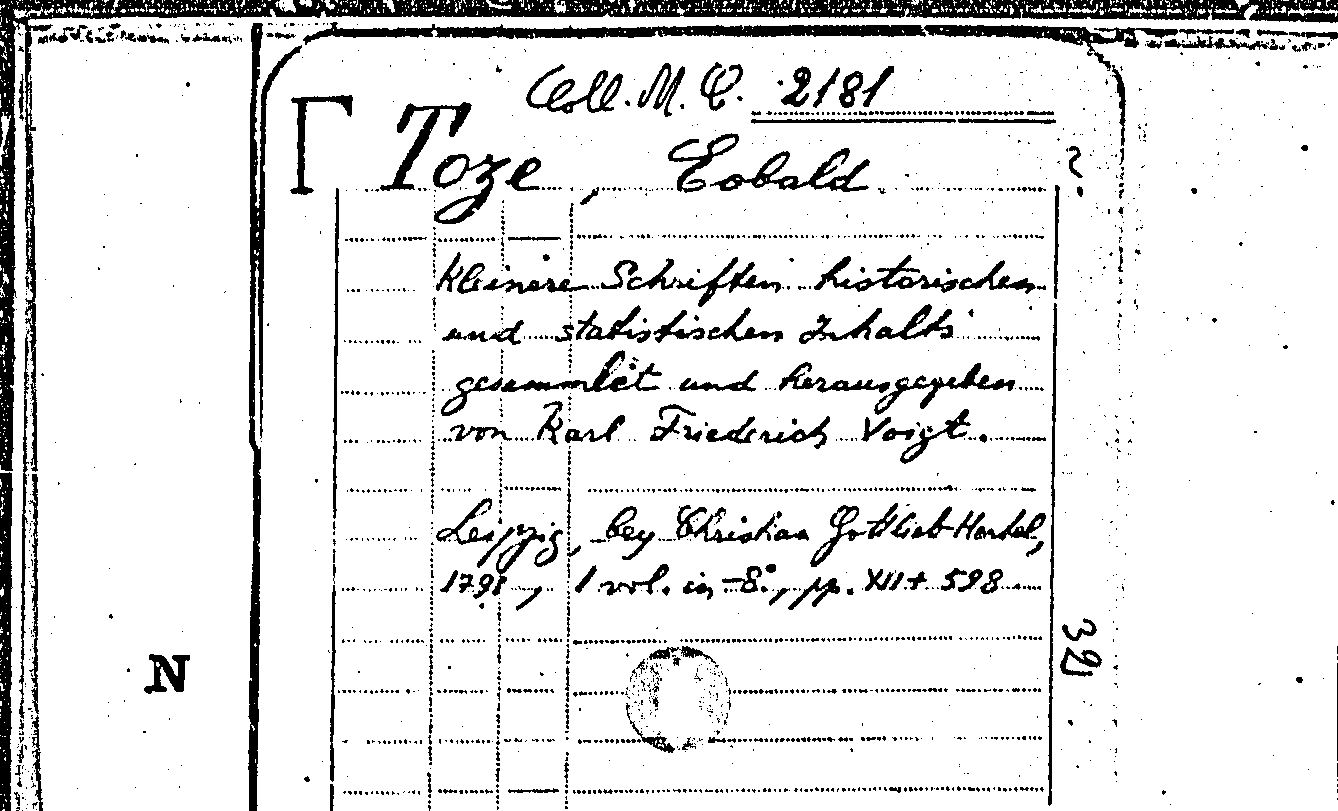 Coll. M. C. 2181
Γ Toze, Eobald ?
Kleinere Schriften historischen
und statistischen Inhalts
gesammlet und herausgegeben
von Karl Friederich Voigt.
Leipzig, bey Christian Gottlieb Hertel,
1791, 1 vol. in-8°., pp. XII + 598
39
N